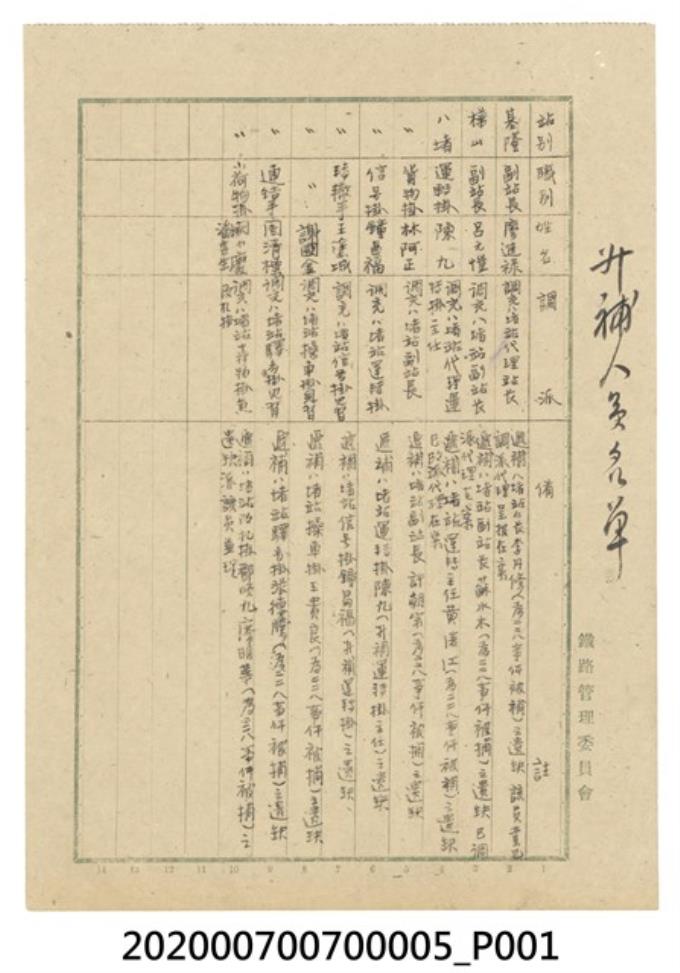 升補人員名單
鐵路管理委員會
站別 職別 姓名 調派 備註
基隆 副站長 廖進祿 調充八堵站代理站長 遞補八堵站長李丹修(為二二八事件被捕)之遺缺 該員業已調派代理呈報在案
樟山 副站長 呂 調充八堵站副站長 遞補八堵站副站長蘇水木(為二二八事件被捕)之遺缺 已調派代理在案
八堵 運轉掛 陳九 調充八堵站代理運轉掛主任 遞補八堵站運轉主任黃清江(為二二八事件被捕)之遺缺 已改派代理在案
〃 貨物掛 林阿正 調充八堵站副站長 遞補八堵站副站長許朝宗(為二二八事件被捕)之遺缺
〃 信号掛 鐘昌福 調充八堵站運轉掛 遞補八堵站運轉掛陳九(升補運轉掛主任)之遺缺
〃 轉轍手 王塗城 調充八堵站信号掛見習 遞補八堵站信号掛鐘昌福(升補運轉掛)之遺缺
〃 〃 謝國金 調充八堵站操車掛見習 遞補八堵站操車掛王貴良(為二二八事件被捕)之遺缺
〃 連結手 周清標 調充八堵站驛務掛見習 遞補八堵站驛務掛張德勝(為二二八事件被捕)之遺缺
〃 小荷物掛 調充八堵站小荷物掛兼改札掛 遞補八堵站改札掛鄭 廖明華(為二二八事件被捕)之遺缺派該員兼理
14 13 12 11 10 9 8 7 6 5 4 3 2 1
202000700700005_P001